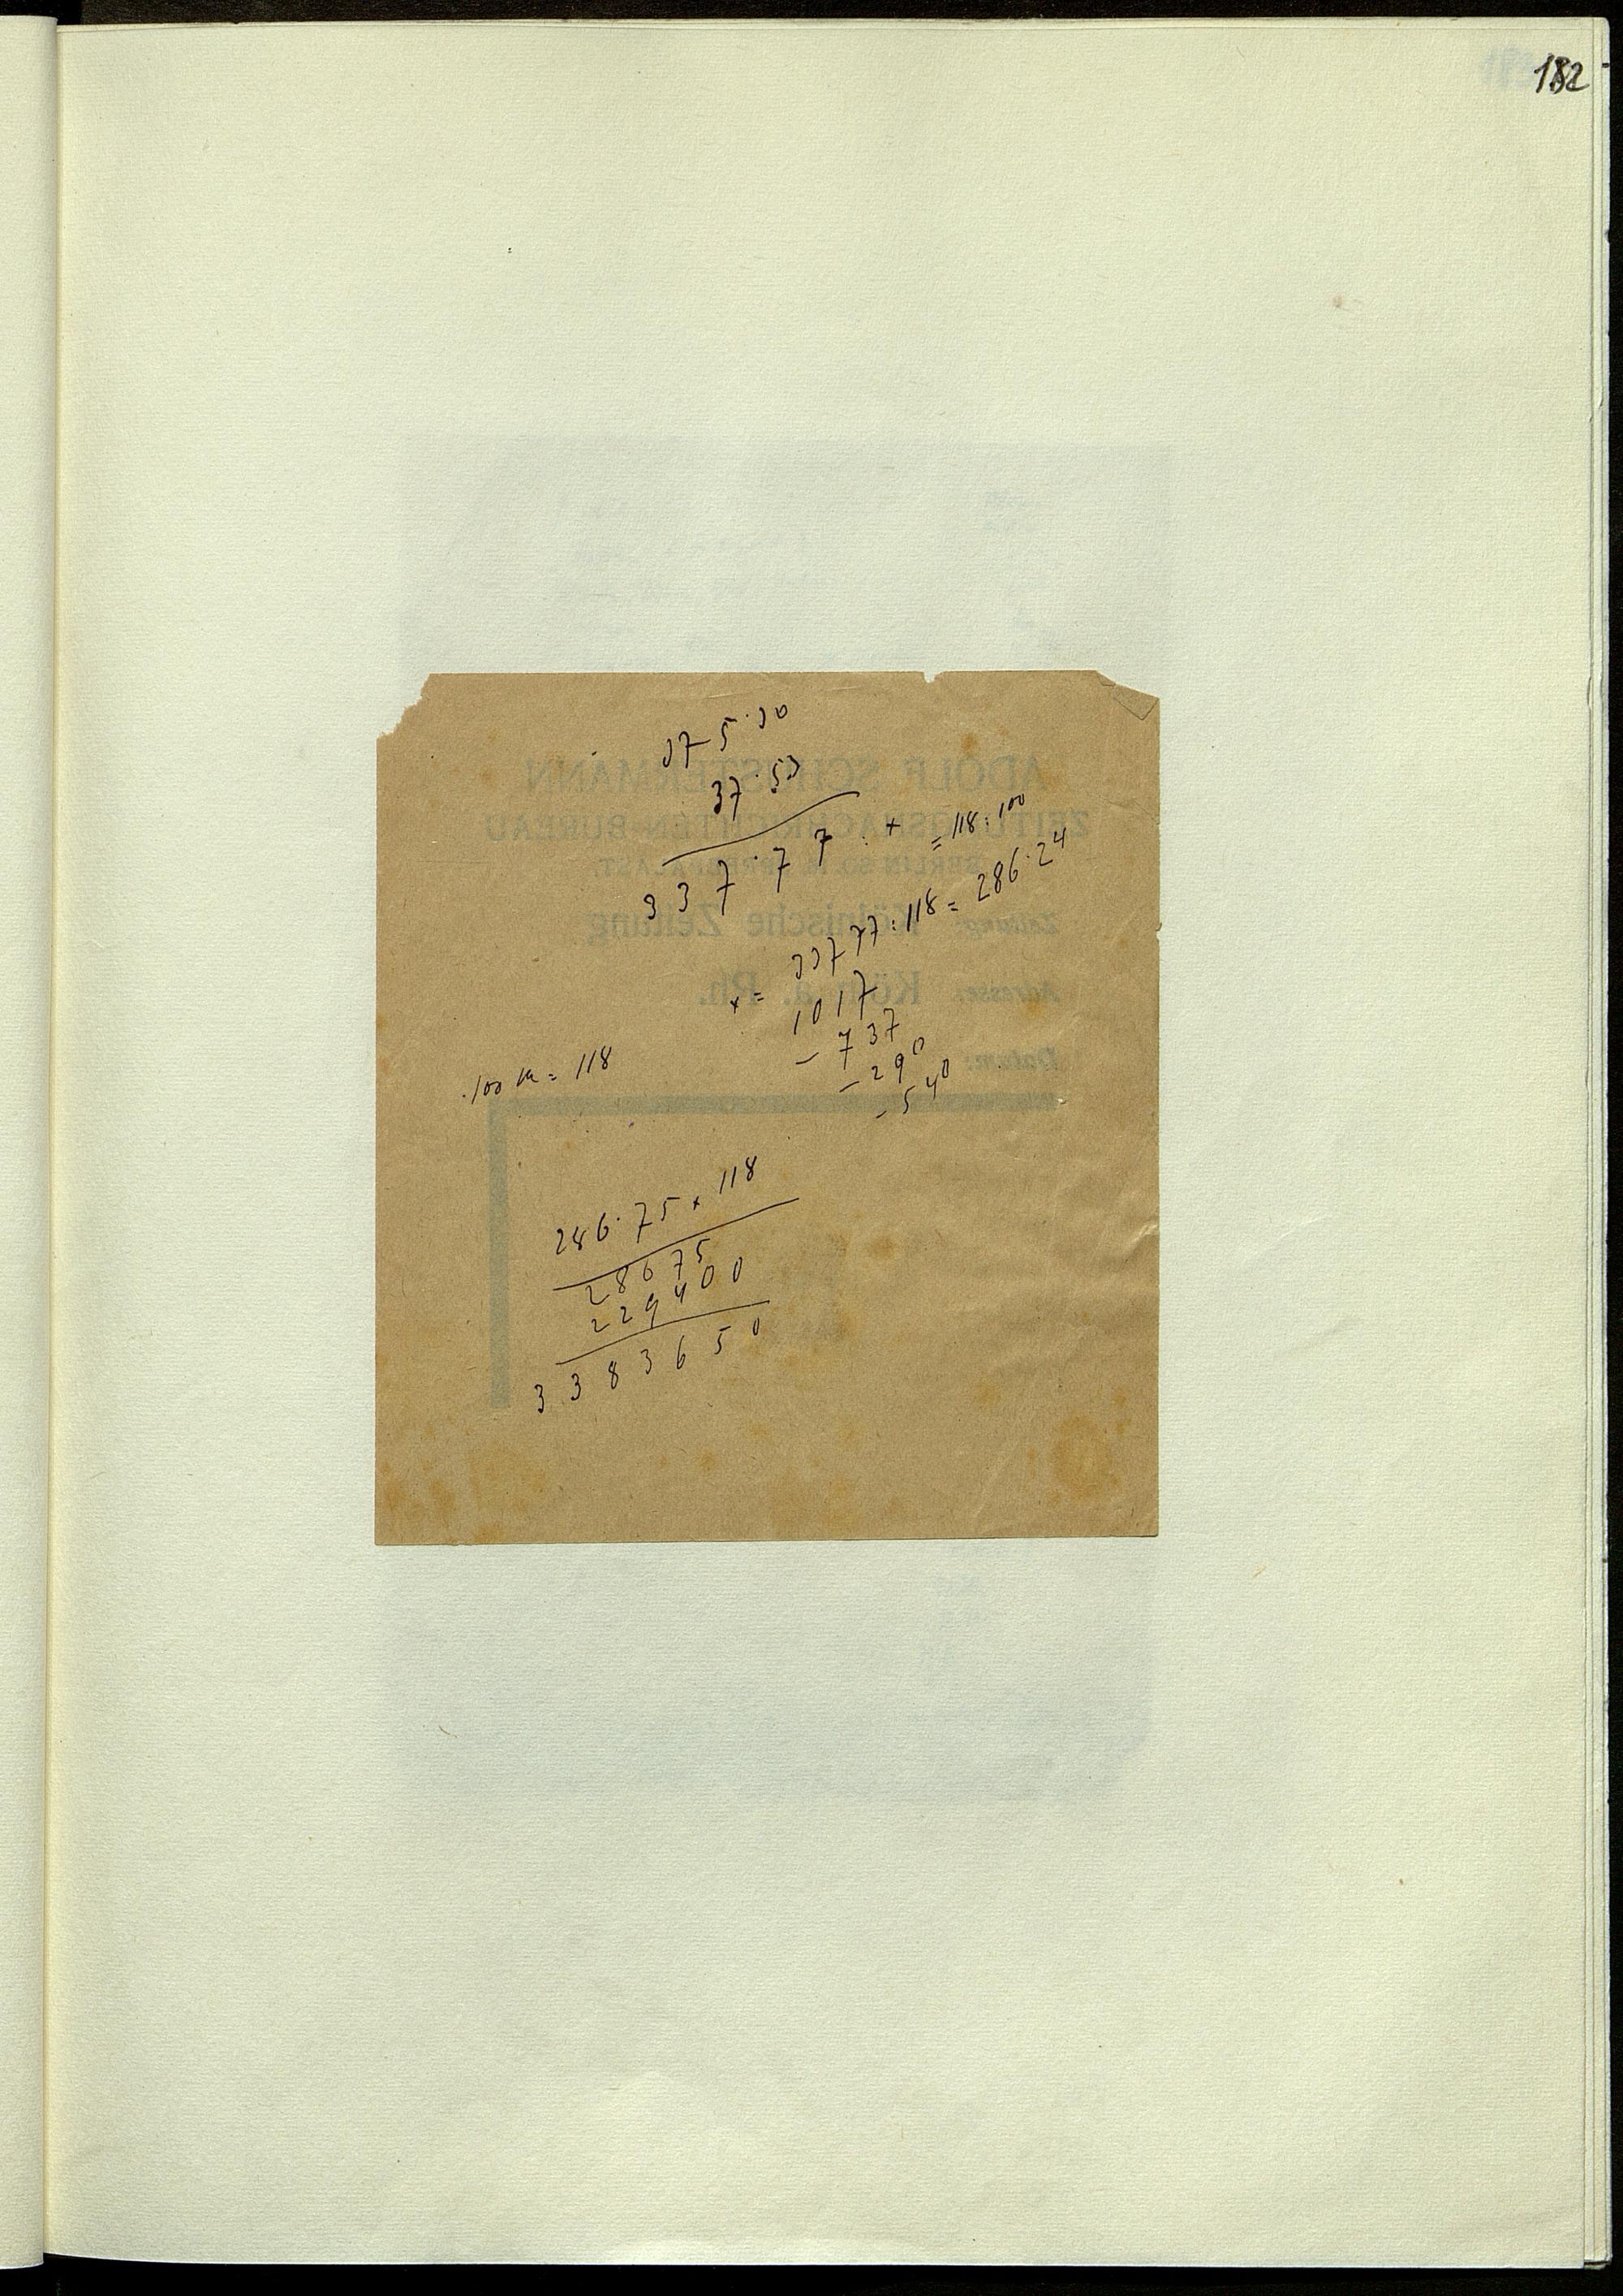 182
375.30
37.53
337.77 : x = 118 : 100
x = 33777 : 118 = 286.24
1017
- 737
- 290
- 540
100 M = 118
286.75 x 118
28675
229400
3383650
ADOLF SCHUSTERMANN
ZEITUNGSNACHRICHTEN-BUREAU
BERLIN SO. 16, SPREEPALAST.
Zeitung: Kölnische Zeitung
Adresse: Köln a. Rh.
Datum: